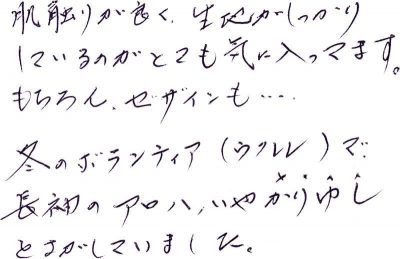 肌触りが良く、生地がしっかり
しているのがとても気に入ってます。
もちろん、デザインも……
冬のボランティア(ウクレレ)で、
長袖のアロハ、いやかりゆし
とさがしていました。